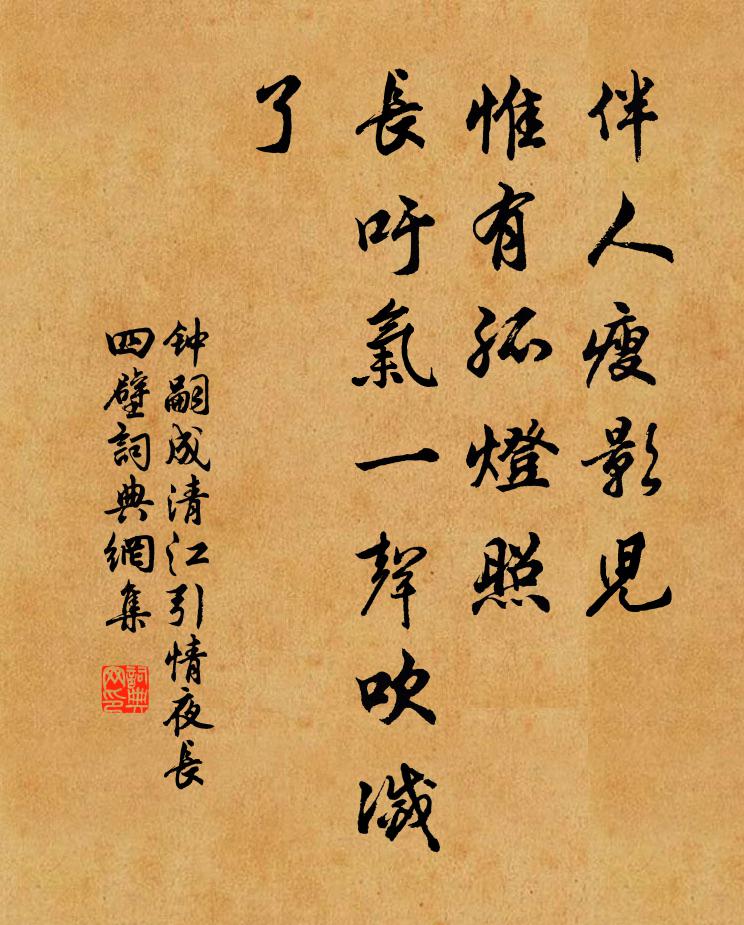 伴人瘦影兒
惟有孤燈照
長吁氣一聲吹滅
了
钟嗣成清江引情夜長
四壁詞典網集
詞典
网印